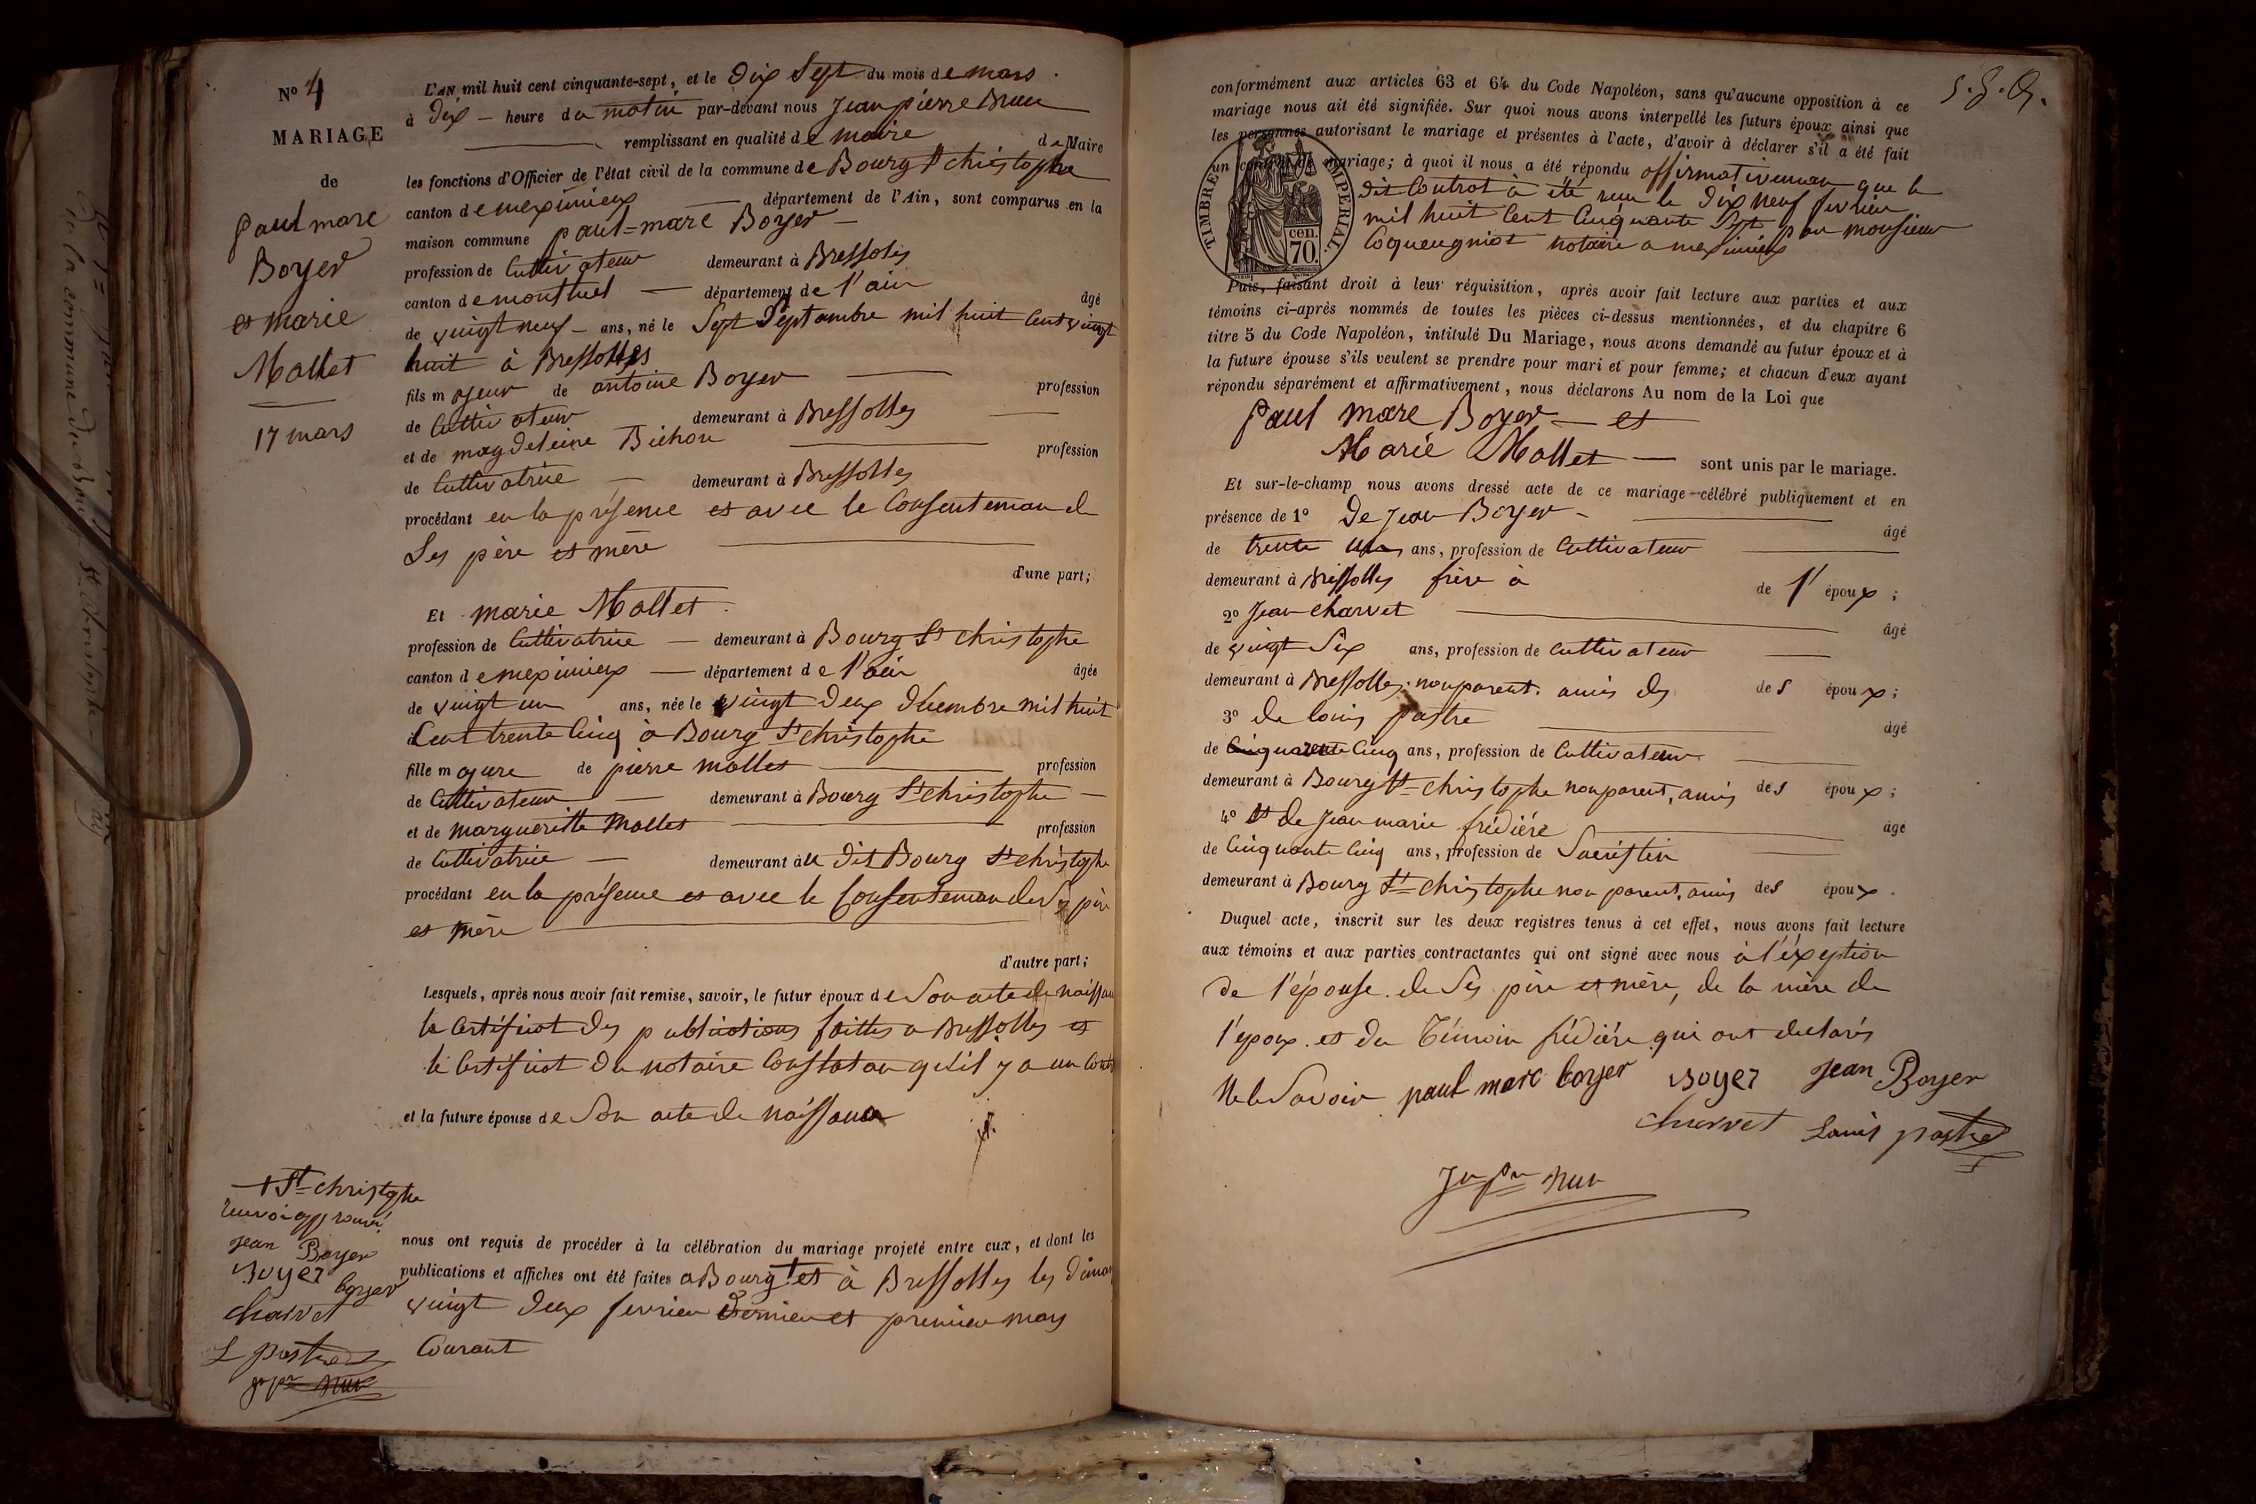 N° 4
MARIAGE
de
Paul marc
Boyer
et marie
Mallet
17 mars
L'AN mil huit cent cinquante-sept, et le dix Sept du mois de mars
à dix heure du matin par-devant nous Jean pierre
remplissant en qualité de maire de Maire
les fonctions d'Officier de l'état civil de la commune de Bourg St christophe
canton de meximieux département de l'Ain, sont comparus en la
maison commune paul=marc Boyer
profession de Cultivateur demeurant à Bressolles
canton de montluel département de l'ain âgé
de vingt neuf ans, né le Sept Septembre mil huit Cent vingt
huit à Bressolles
fils majeur de antoine Boyer profession
de Cultivateur demeurant à Bressolles
et de magdeleine Bichon profession
de Cultivatrice demeurant à Bressolles
procédant en la présence et avec le Consenteman de
Ses père et mère
d'une part;
Et marie Mallet
profession de Cultivatrice demeurant à Bourg St christophe
canton de meximieux département de l'ain âgée
de vingt un ans, née le vingt deux décembre mil huit
Cent trente Cinq à Bourg St christophe
fille majeure de pierre mallet profession
de Cultivateur demeurant à Bourg St christophe
et de margueritte Mallet profession
de Cultivatrice demeurant au dit Bourg St christophe
procédant en la présence et avec le Consenteman de Ses père
et mère
d'autre part;
Lesquels, après nous avoir fait remise, savoir, le futur époux de Son acte de naissan
le Certificat des publications faittes a Bressolles et
le Certificat du notaire Constatan qu'il y a un Contr
et la future épouse de Son acte de naissance
+ St christophe
Renvoi approuvé
Jean Boyer
Boyer
boyer
charvet
L pastre
nous ont requis de procéder à la célébration du mariage projeté entre eux, et dont les
publications et affiches ont été faites a Bourg + et à Bressolles les diman
vingt deux fevrier dernier et premier mars
Courant
conformément aux articles 63 et 64 du Code Napoléon, sans qu'aucune opposition à ce
mariage nous ait été signifiée. Sur quoi nous avons interpellé les futurs époux ainsi que
les personnes autorisant le mariage et présentes à l'acte, d'avoir à déclarer s'il a été fait
un contrat de mariage; à quoi il nous a été répondu affirmativeman que le
dit Contrat à été reçu le dix neuf fevrier
mil huit Cent Cinquante Sept par monsieur
Cocqueugniot notaire a meximieux
TIMBRE IMPERIAL
70 cen.
Puis, faisant droit à leur réquisition, après avoir fait lecture aux parties et aux
témoins ci-après nommés de toutes les pièces ci-dessus mentionnées, et du chapitre 6
titre 5 du Code Napoléon, intitulé Du Mariage, nous avons demandé au futur époux et à
la future épouse s'ils veulent se prendre pour mari et pour femme; et chacun d'eux ayant
répondu séparément et affirmativement, nous déclarons Au nom de la Loi que
Paul marc Boyer et
Marie Mallet sont unis par le mariage.
Et sur-le-champ nous avons dressé acte de ce mariage célébré publiquement et en
présence de 1° De Jean Boyer âgé
de trente un ans, profession de Cultivateur
demeurant à Bressolles frère à de l' époux;
2° Jean charvet âgé
de vingt Six ans, profession de cultivateur
demeurant à Bressolles. non parent. amis des des époux;
3° de louis pastre âgé
de Cinq ans, profession de Cultivateur
demeurant à Bourg St christophe non parent, amis des époux;
4° et de Jean marie frédière âgé
de Cinquante Cinq ans, profession de Sacristin
demeurant à Bourg St christophe non parent, amis des époux.
Duquel acte, inscrit sur les deux registres tenus à cet effet, nous avons fait lecture
aux témoins et aux parties contractantes qui ont signé avec nous à l'éxeption
de l'épouse. de Ses père et mère, de la mère de
l'époux. et du Témoin frédière qui ont declarés
Ne le Savoir paul marc boyer Boyer Jean Boyer
charvet Louis pastre